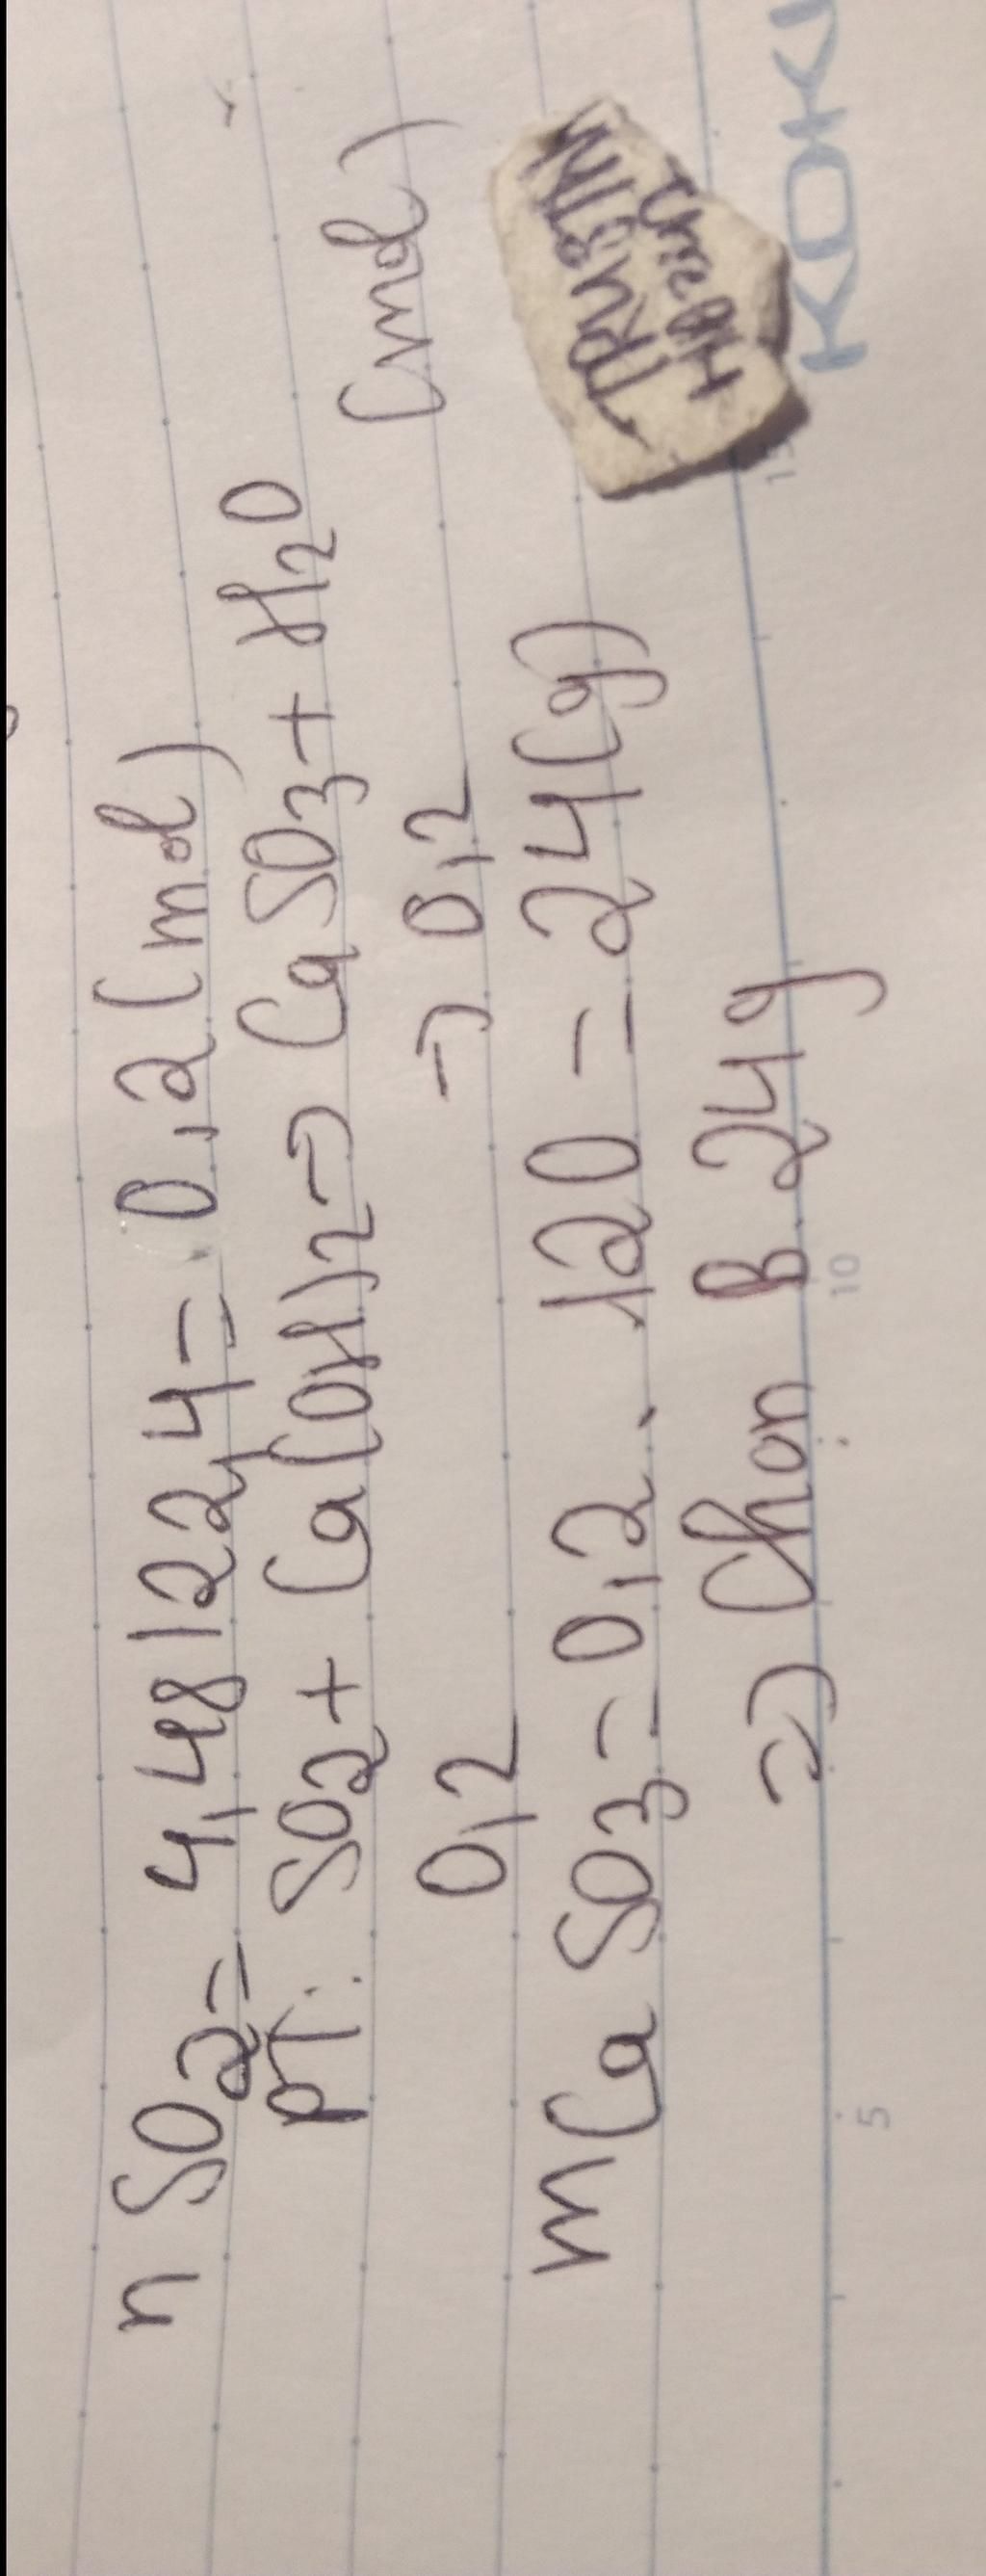 n SO2= 4,48/22,4= 0,2(mol)
PT: SO2+ Ca(OH)2→ CaSO3+ H2O
0,2 → 0,2 (mol)
mCaSO3=0,2.120=24(g)
=> Chon B.24g
TRUSTIN
5 10 15
KOKU